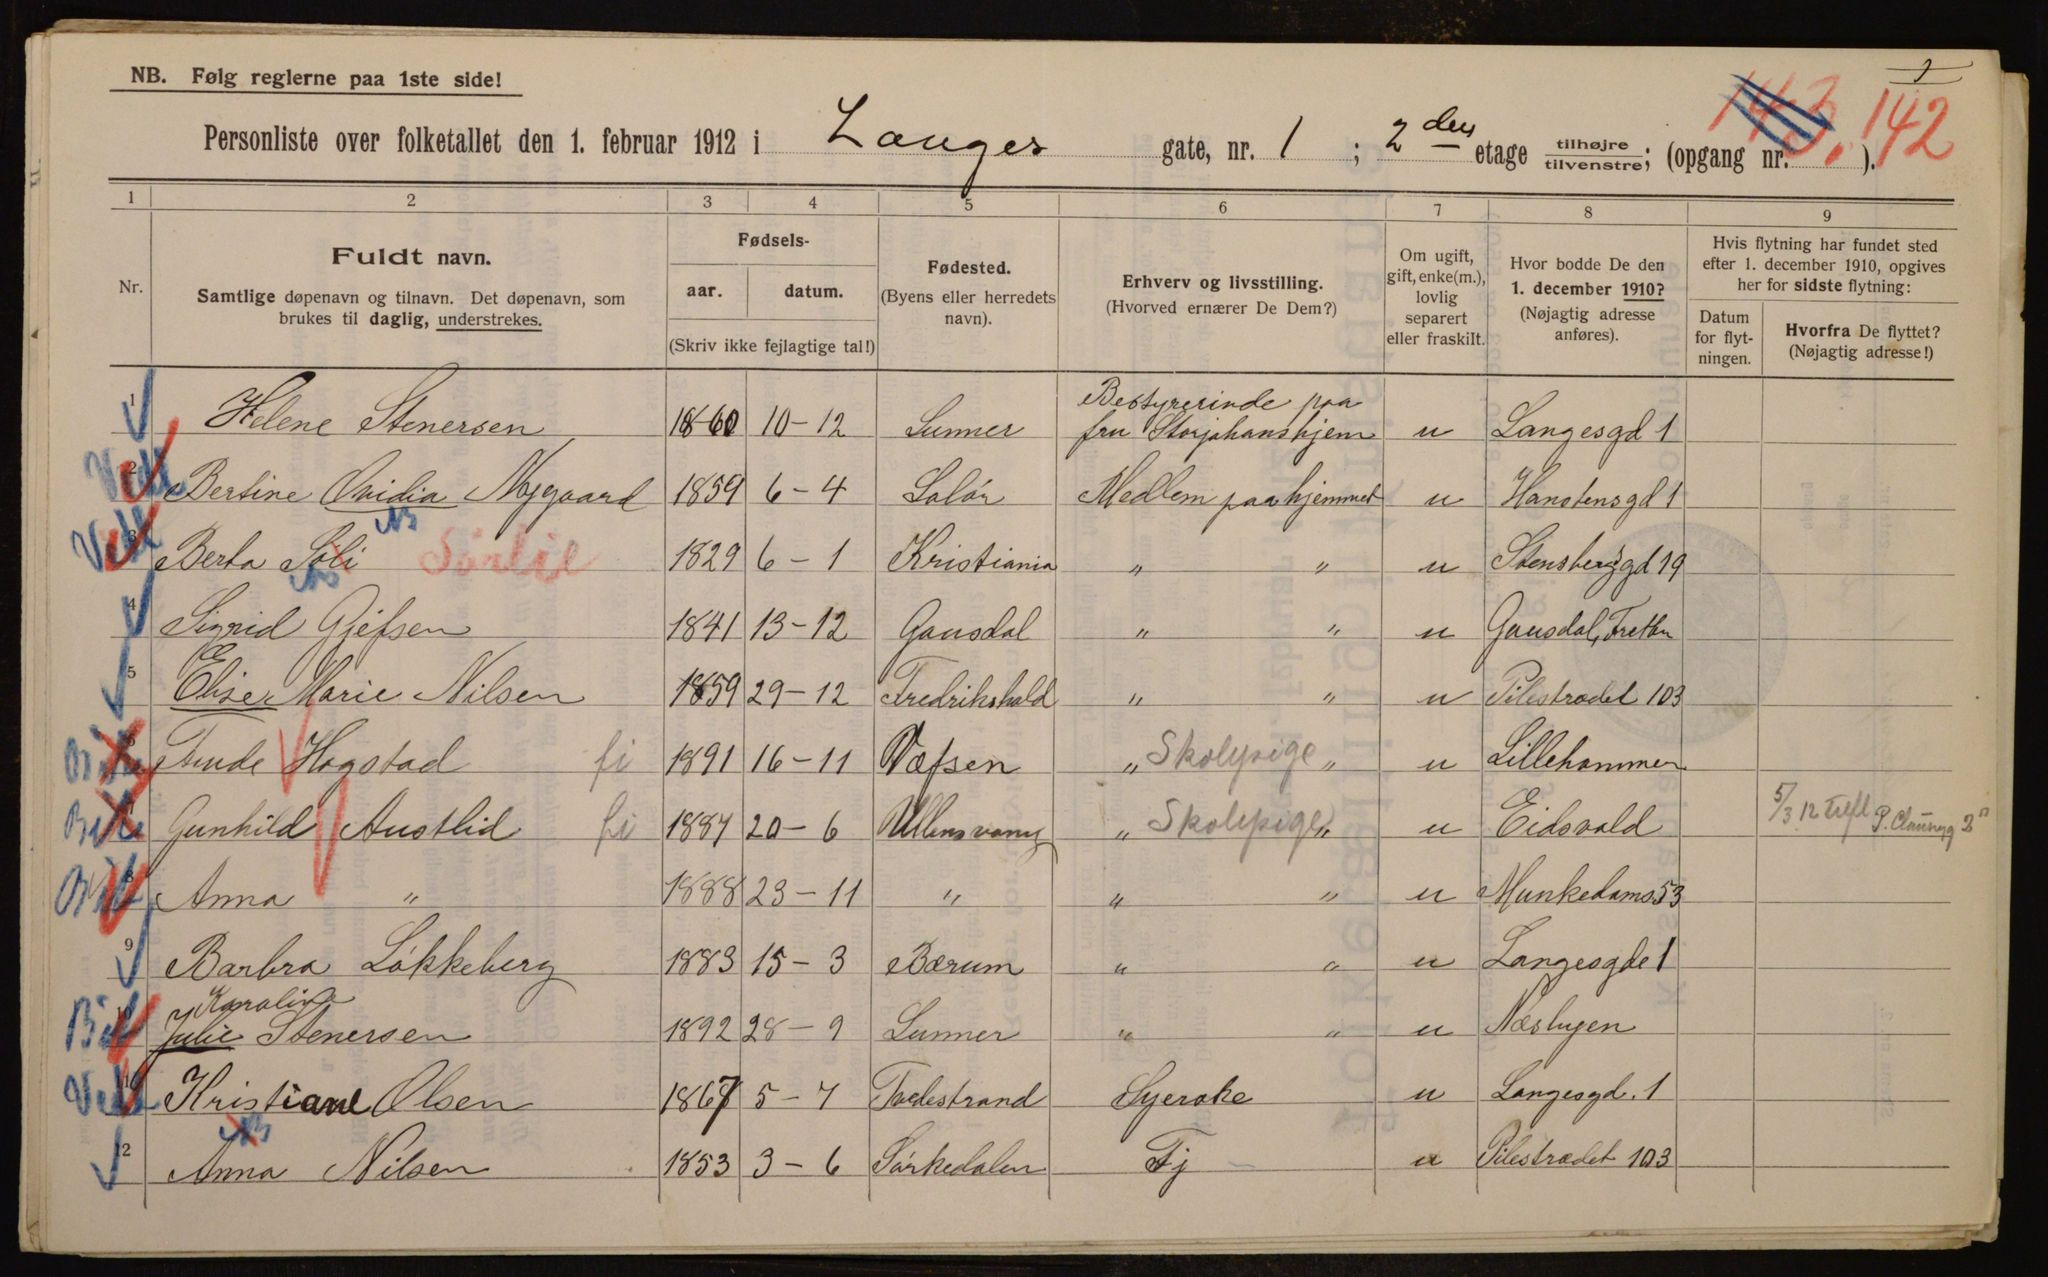 NB. Følg reglerne paa 1ste side!
143. 142
Personliste over folketallet den 1. februar 1912 i Langes gate, nr. 1 ; 2den etage tilhøjre tilvenstre; (opgang nr. ).
1 2 3 4 5 6 7 8 9
Nr.
Fuldt navn.
Samtlige døpenavn og tilnavn. Det døpenavn, som
brukes til daglig, understrekes.
Fødsels-
aar. datum.
(Skriv ikke fejlagtige tal!)
Fødested.
(Byens eller herredets
navn).
Erhverv og livsstilling.
(Hvorved ernærer De Dem?)
Om ugift,
gift, enke(m.),
lovlig
separert
eller fraskilt.
Hvor bodde De den
1. december 1910?
(Nøjagtig adresse
anføres).
Hvis flytning har fundet sted
efter 1. december 1910, opgives
her for sidste flytning:
Datum
for flyt-
ningen.
Hvorfra De flyttet?
(Nøjagtig adresse!)
1 Helene Stenersen 1860 10-12 Lunner Bestyrerinde paa fru Storjohanshjem u Langesgd 1
2 Bertine Ovidia Nygaard 1859 6-4 Solør Medlem paa hjemmet u Hanstensgd 1
3 Berta Soli Sørlie 1829 6-1 Kristiania " " u Stensberggd 19
4 Sigrid Gjefsen 1841 13-12 Gausdal " " u Gausdal,
5 Elise Marie Nilsen 1859 29-12 Fredrikshald " " u Pilestrædet 103
6 Hogstad fi 1891 16-11 Vefsen " Skolepige " u Lillehammer
7 Gunhild Austlid fi 1887 20-6 Ullensvang " Skolepige " u Eidsvold 5/3 12
8 Anna " 1888 23-11 " " " u Munkedams 53
9 Barbra Løkkeberg 1883 15-3 Bærum " " u Langesgde 1
10 Julie Karoline Stenersen 1892 28-9 Lunner " " u Næsbyen
11 Kristiane Olsen 1867 5-7 Tvedestrand Syerske u Langesgd. 1
12 Anna Nilsen 1853 3-6 Sørkedalen Tj u Pilestrædet 103